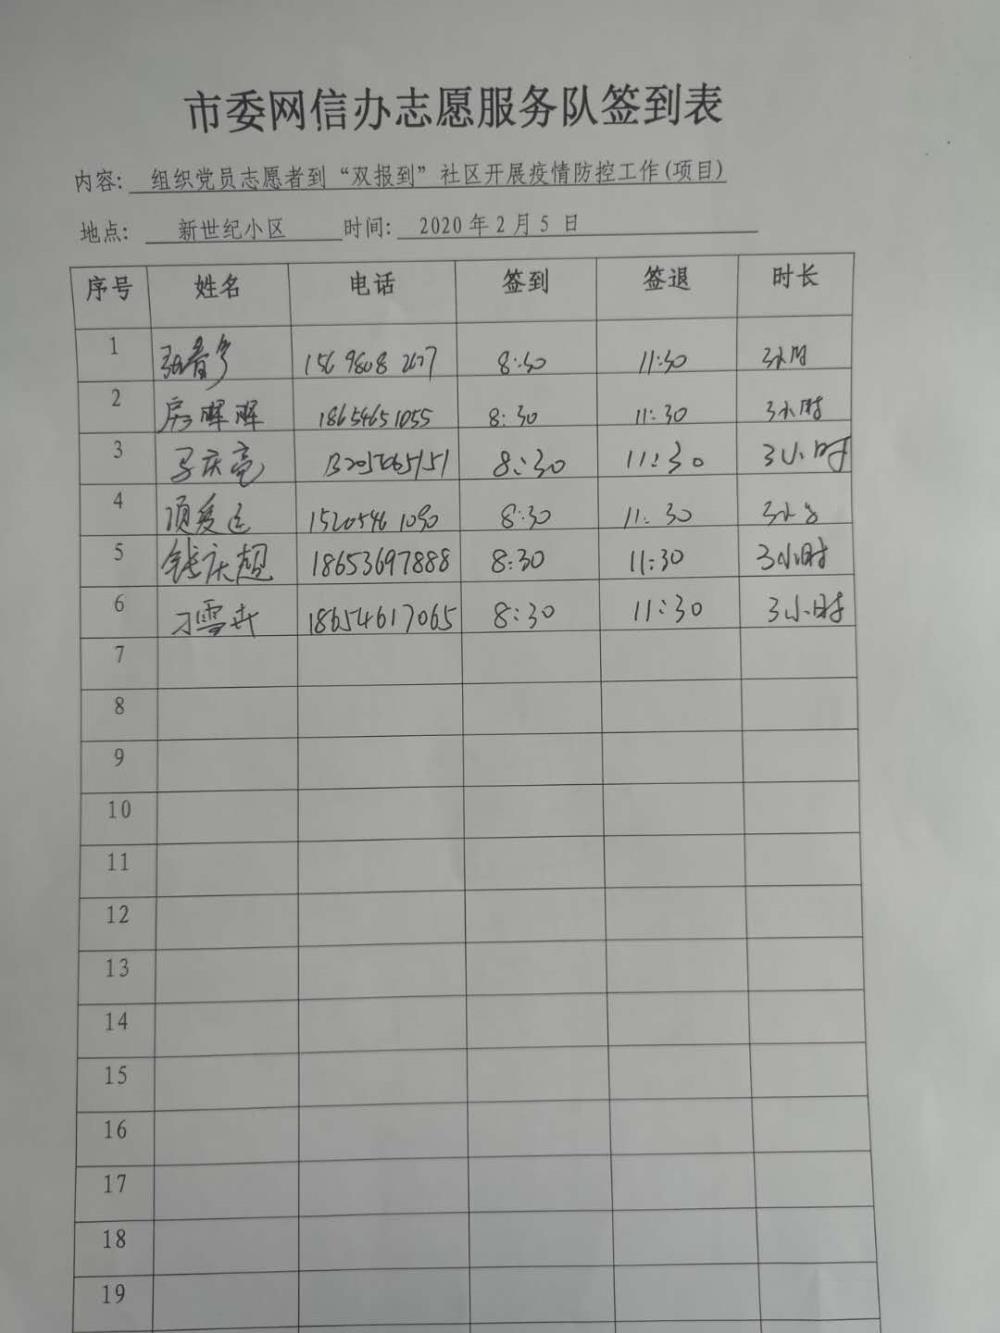 市委网信办志愿服务队签到表
内容: 组织党员志愿者到“双报到”社区开展疫情防控工作(项目)
地点: 新世纪小区 时间: 2020年2月5日
序号 姓名 电话 签到 签退 时长
1 8:30 11:30 3小时
2 房晖晖 18654651055 8:30 11:30 3小时
3 马庆亮 8:30 11:30 3小时
4 8:30 11:30 3小时
5 钱庆超 18653697888 8:30 11:30 3小时
6 刁雪卉 18654617065 8:30 11:30 3小时
7
8
9
10
11
12
13
14
15
16
17
18
19